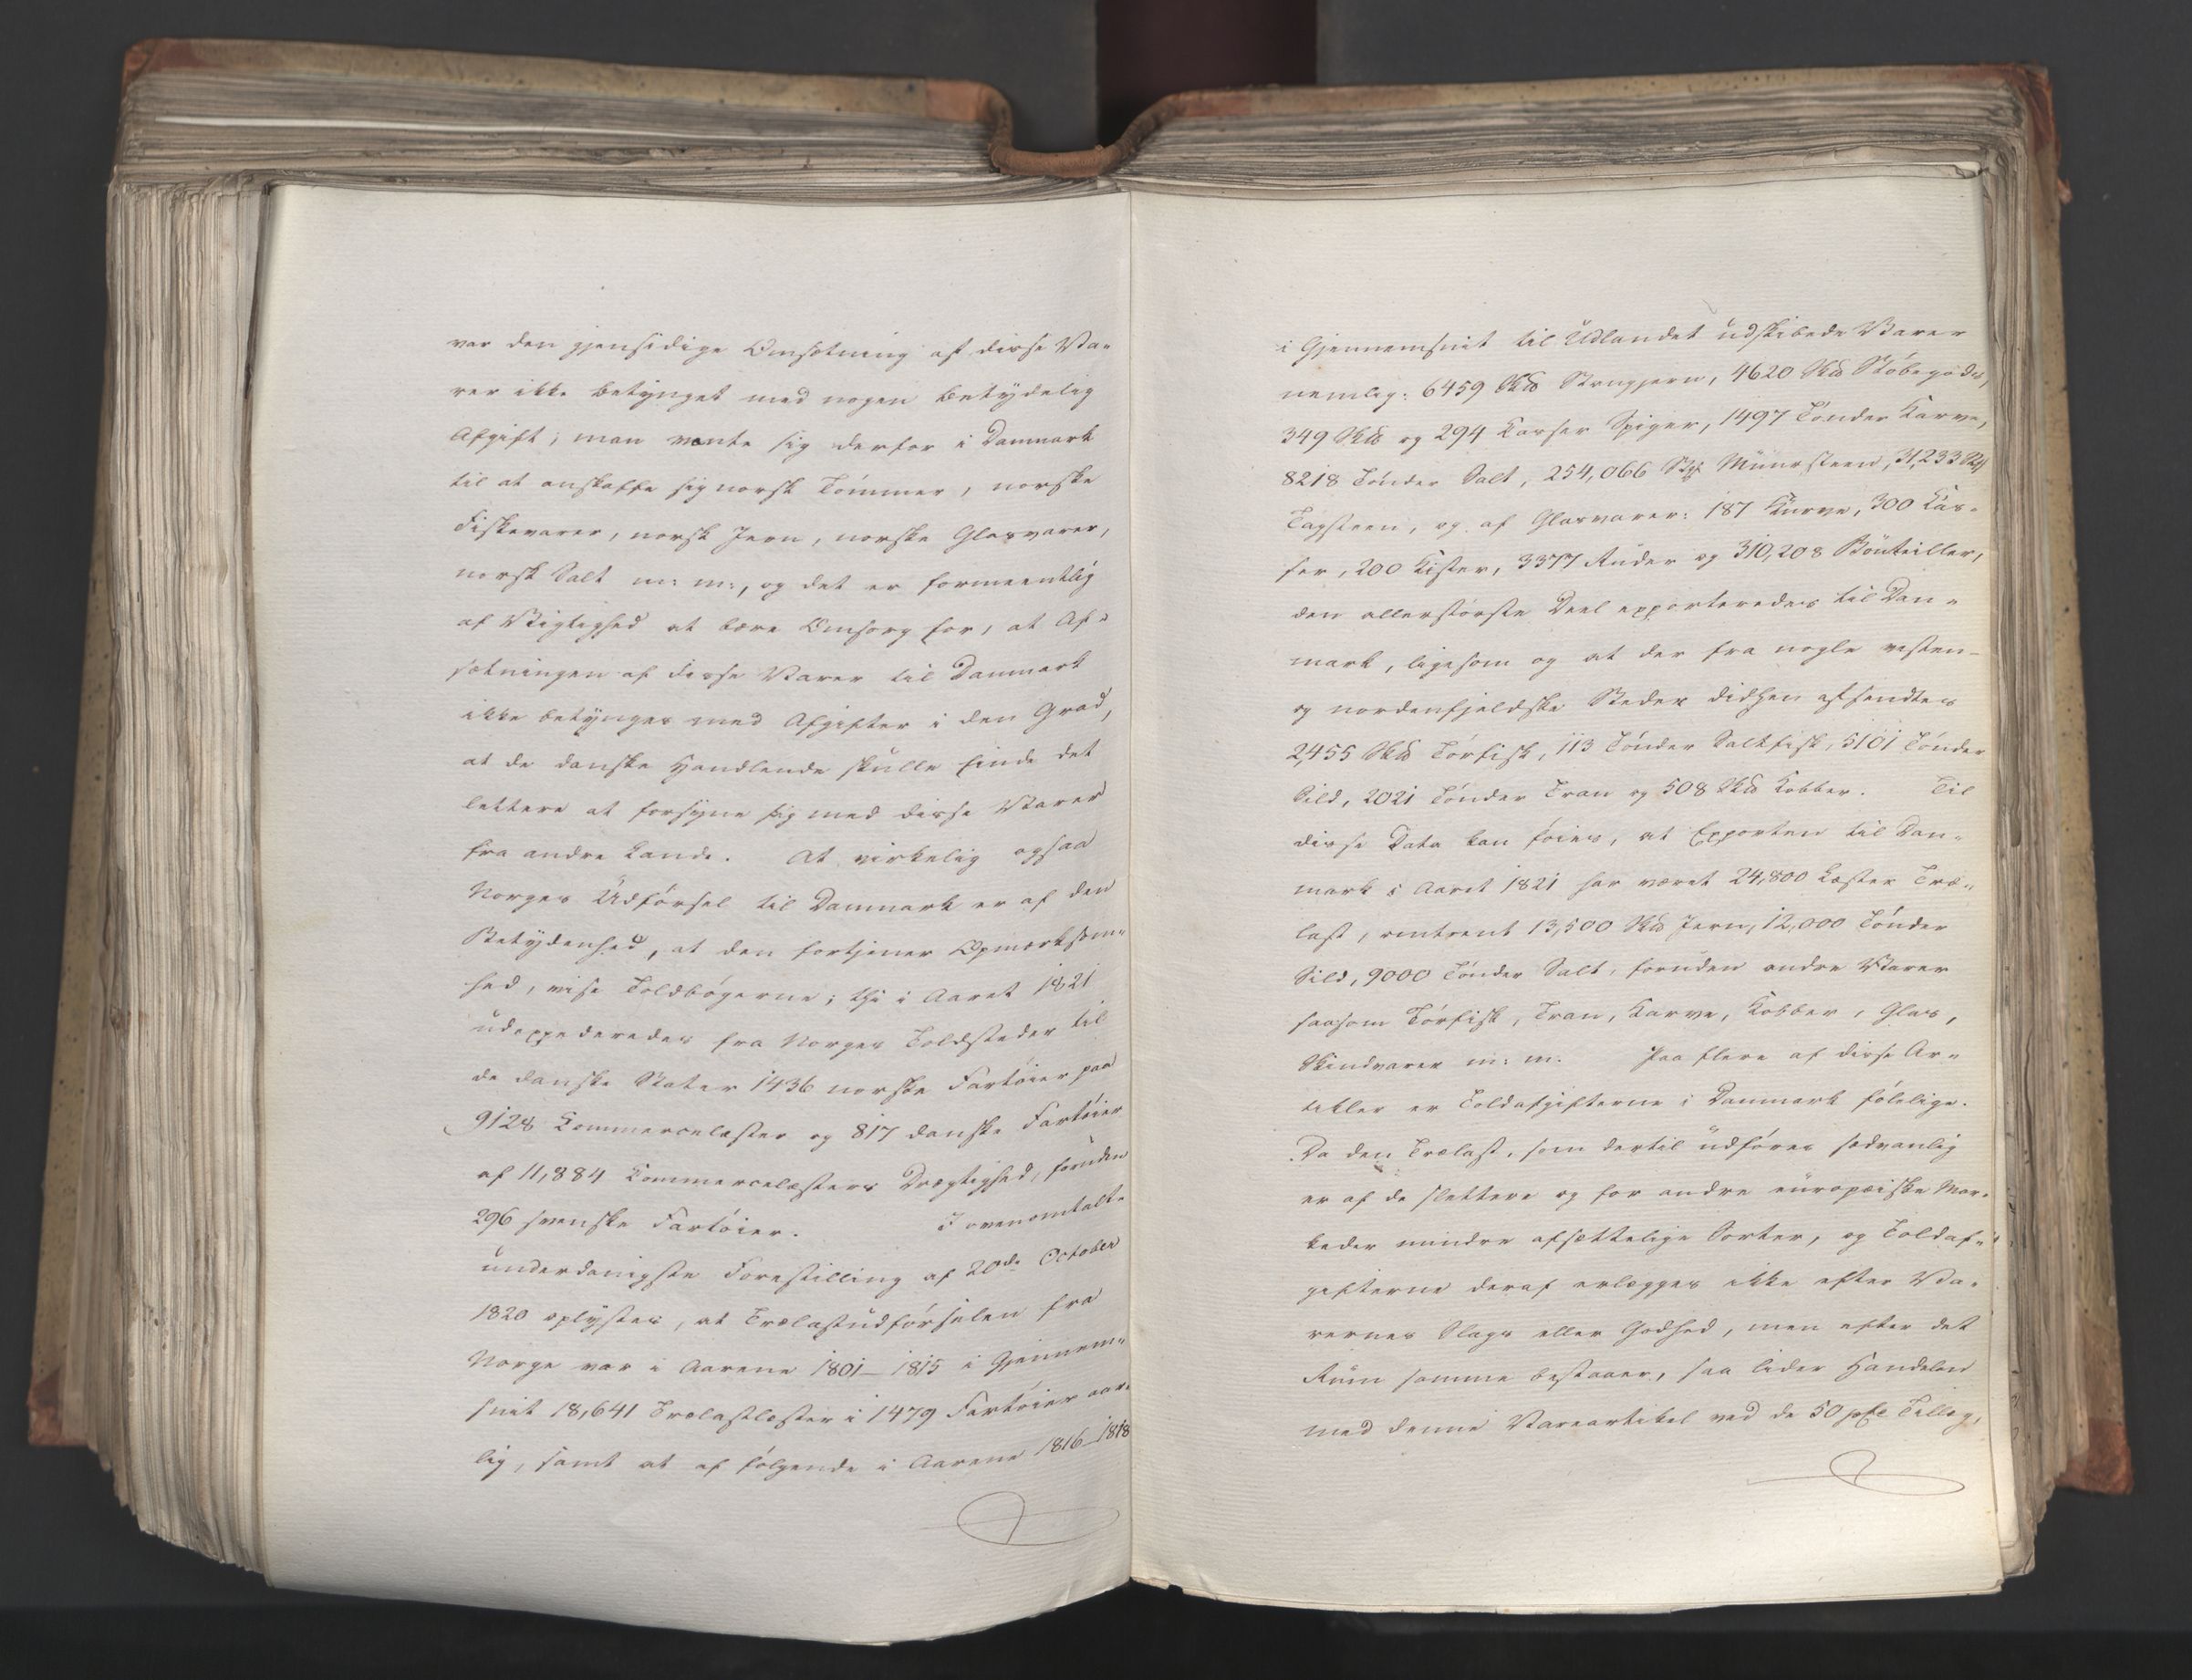 var den gjensidige Omsætning af disse Va-
rer ikke betynget med nogen betydelig
Afgift; man vante sig derfor i Danmark
til at anskaffe sig norsk Tømmer, norske
Fiskevarer, norsk Jern, norske Glasvarer,
norsk Salt m: m:, og det er formeentlig
af Vigtighed at bære Omsorg for, at Af-
sætningen af disse Varer til Danmark
ikke betynges med Afgifter i den Grad,
at de danske Handlende skulle finde det
lettere at forsyne sig med disse Varer
fra andre Lande. At virkelig ogsaa
Norges Udførsel til Danmark er af den
Betydenhed, at den fortjener Opmærksom-
hed, vise Toldbøgerne; thi i Aaret 1821
udexpederedes fra Norges Toldsteder til
de danske Stater 1436 norske Fartøier paa
9128 Commercelæster og 817 danske Fartøier
af 11,884 Commercelæsters Drægtighed, foruden
296 svenske Fartøier. I ovenomtalte
underdanigste Forestilling af 20de October
1820 oplystes, at Trælastudførselen fra
Norge var i Aarene 1801–1815 i Gjennem-
snit 18,641 Trælastlæster i 1479 Fartøier aar-
lig, samt at af følgende i Aarene 1816–1818
i Gjennemsnit til Udlandet udskibede Varer
nemlig: 6459 Sk℔ Stangjern, 4620 Sk℔ Støbegods,
349 Sk℔ og 294 Casser Spiger, 1497 Tønder Karve,
8218 Tønder Salt, 254,066 Stk Muursteen, 31,233 Stk
Tagsteen, og af Glasvarer: 187 Kurve, 300 Kas-
ser, 200 Kister, 3377 Ruder og 310,208 Bouteiller,
den allerstørste Deel exporteredes til Dan-
mark, ligesom og at der fra nogle vesten-
og nordenfjeldske Steder didhen afsendtes
2,455 Sk℔ Tørfisk, 113 Tønder Saltfisk, 5101 Tønder
Sild, 2021 Tønder Tran og 508 Sk℔ Kobber. Til
disse Data kan føies, at Exporten til Dan-
mark i Aaret 1821 har været 24,800 Læster Træ-
last, omtrent 13,500 Sk℔ Jern, 12,000 Tønder
Sild, 9000 Tønder Salt, foruden andre Varer
saasom Tørfisk, Tran, Karve, Kobber, Glas,
Skindvarer m: m. Paa flere af disse Ar-
tikler er Toldafgifterne i Danmark følelige.
Da den Trælast, som dertil udføres sædvanlig
er af de slettere og for andre europæiske Mar-
keder mindre afsættelige Sorter, og Toldaf-
gifterne deraf erlægges ikke efter Va-
rernes Slags eller Godhed, men efter det
Rum samme bestaaer, saa lider Handelen
med denne Vareartikel ved de 50 pCt Tillæg,